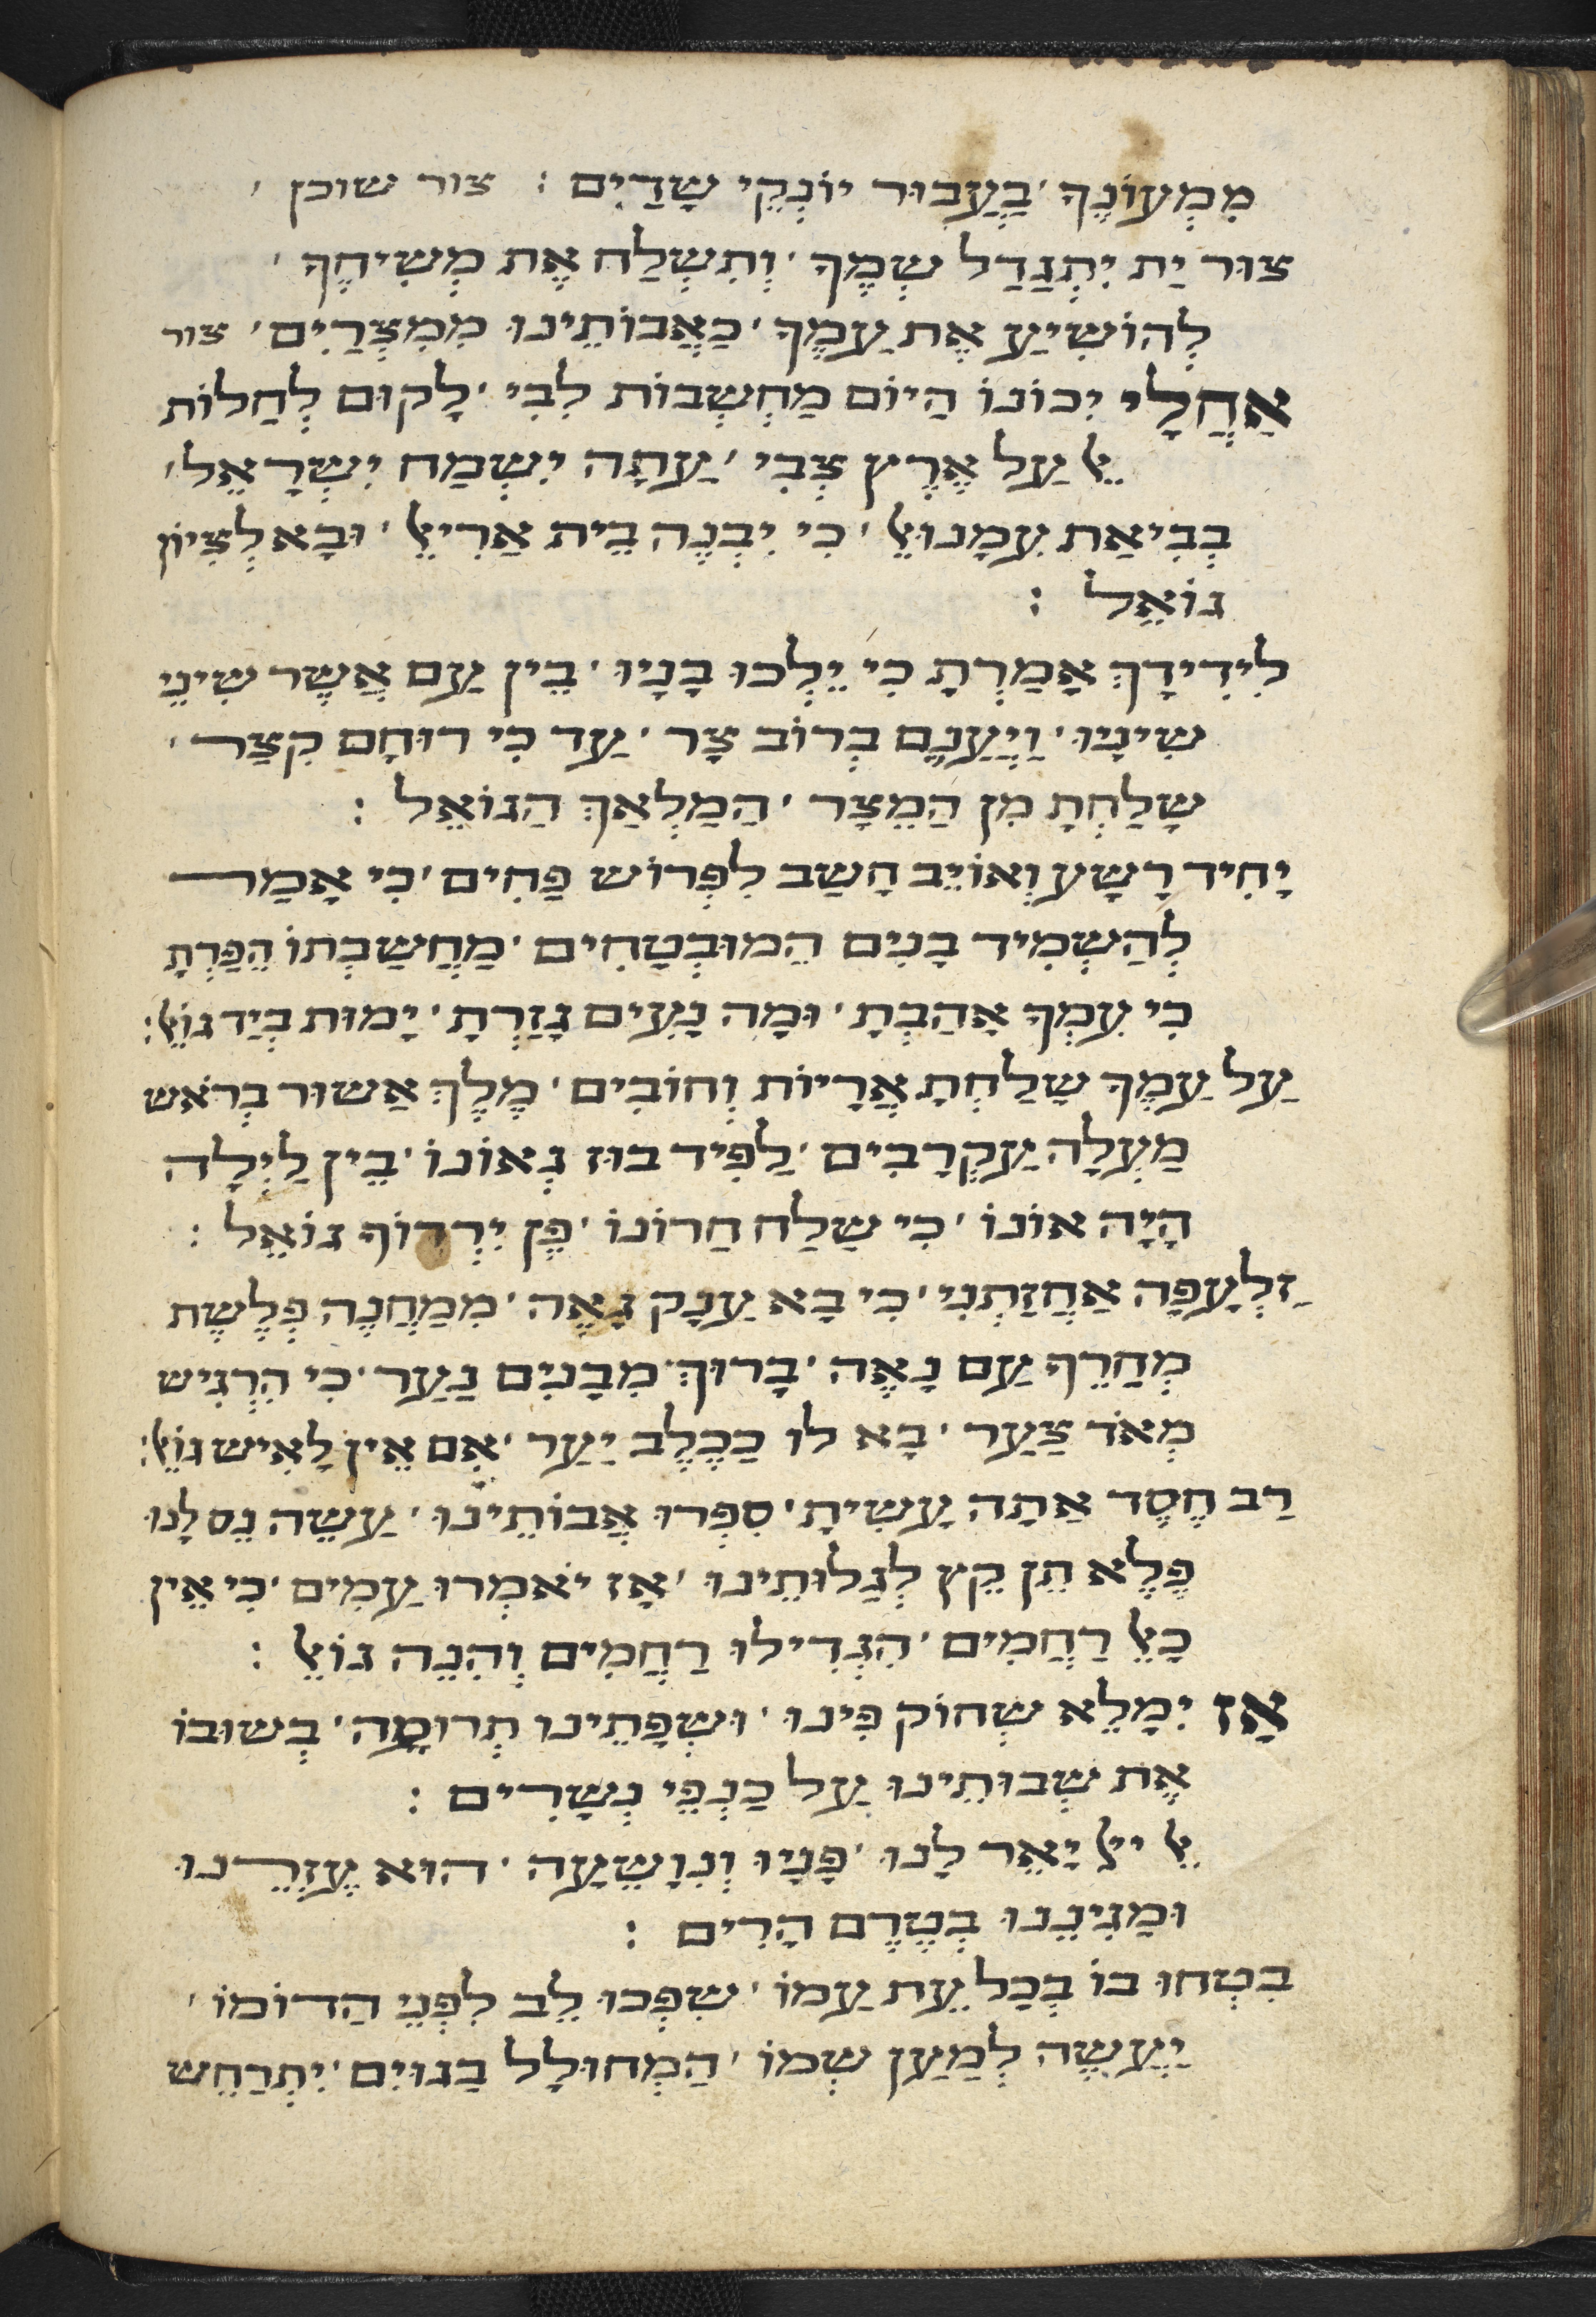 מִמְעוֹנֶךָ ׳ בַּעֲבוּר יוֹנְקֵי שָׁדַיִם : צור שוכן ׳
צוּר יַת יִתְגַדַל שְׁמֶךָ ׳ וְתִשְׁלַח אֶת מְשִׁיחֶךָ ׳
לְהוֹשִׁיעַ אֶת עַמֶךָ ׳ כַּאֲבוֹתֵינוּ מִמִצְרַיִם ׳ צור
אַחֲלַי יִכּוֹנוֹ הַיוֹם מַחְשְׁבוֹת לִבִּי ׳ לָקוּם לְחַלוֹת
אֵל עַל אֶרֶץ צְבִי ׳ עַתָה יִשְׂמַח יִשְׂרָאֵל ׳
בְּבִיאַת עִמָנוּאֵל ׳ כִּי יִבְנֶה בֵּית אֲרִיאֵל ׳ וּבָא לְצִיוֹן
גוֹאֵל :
לִידִידָךְ אָמַרְתָ כִּי יֵלְכוּ בָּנָיו ׳ בֵּין עַם אֲשֶׁר שִׁינֵי
שִׁינָיו ׳ וַיְעַנֵם בְּרוֹב צָר ׳ עַד כִּי רוּחָם קִצַר ׳
שָׁלַחְתָ מִן הַמֵצָר ׳ הַמַלְאָךְ הַגוֹאֵל :
יָחִיד רָשָׁע וְאוֹיֵב חָשַׁב לִפְרוֹשׁ פַּחִים ׳ כִּי אָמַר
לְהַשְׁמִיד בָּנִים הַמוּבְטָחִים ׳ מַחֲשַׁבְתוֹ הֵפַרְתָ
כִּי עִמְךָ אָהַבְתָ ׳ וּמָה נָעִים גָזַרְתָ ׳ יָמוּת בְּיַד גוֹאֵל :
עַל עַמֶךָ שָׁלַחְתָ אֲרָיוֹת וְחוֹבִים ׳ מֶלֶךְ אַשׁוּר בְּרֹאשׁ
מַעְלָה עַקְרָבִים ׳ לַפִּיד בּוּז גְאוֹנוֹ ׳ בֵּין לַיְלָה
הָיָה אוֹנוֹ ׳ כִּי שָׁלַח חֲרוֹנוֹ ׳ פֶּן יִרְדוֹף גוֹאֵל :
זַלְעָפָה אֲחָזַתְנִי ׳ כִּי בָא עֲנָק גֵאֶה ׳ מִמַחֲנֶה פְּלֶשֶׁת
מְחָרֵף עַם נָאֶה ׳ בָּרוּךְ מִבָּנִים נַעַר ׳ כִּי הִרְגִישׁ
מְאֹד צַעַר ׳ בָּא לוֹ כַּכֶלֶב יַעַר ׳ אִם אֵין לָאִישׁ גוֹאֵל :
רַב חֶסֶד אַתָה עָשִׂיתָ ׳ סִפְּרוּ אֲבוֹתֵינוּ ׳ עֲשֵׂה נֵס לָנוּ
פֶּלֶא תֵן קֵץ לְגָלוּתֵינוּ ׳ אָז יֹאמְרוּ עַמִים ׳ כִּי אֵין
כָּאֵל רַחֲמִים ׳ הִגְדִילוּ רַחֲמִים וְהִנֵה גוֹאֵל :
אָז יִמָלֵא שְׂחוֹק פִּינוּ ׳ וּשְׂפָתֵינוּ תְרוּמָה ׳ בְּשׁוּבוֹ
אֶת שְׁבוּתֵינוּ עַל כַּנְפֵי נְשָׁרִים :
אֵל יאל יָאֵר לָנוּ ׳ פָּנָיו וְנִוָשֵׁעָה ׳ הוּא עֶזְרֵנוּ
וּמָגִינֵנוּ בְּטֶרֶם הָרִים :
בִּטְחוּ בוֹ בְּכָל עֵת עַמוֹ ׳ שִׁפְכוּ לֵב לִפְנֵי הֲדוֹמוֹ ׳
יַעֲשֶׂה לְמַעַן שְׁמוֹ ׳ הַמְחוּלָל בַּגוֹיִם ׳ יִתְרַחֵשׁ